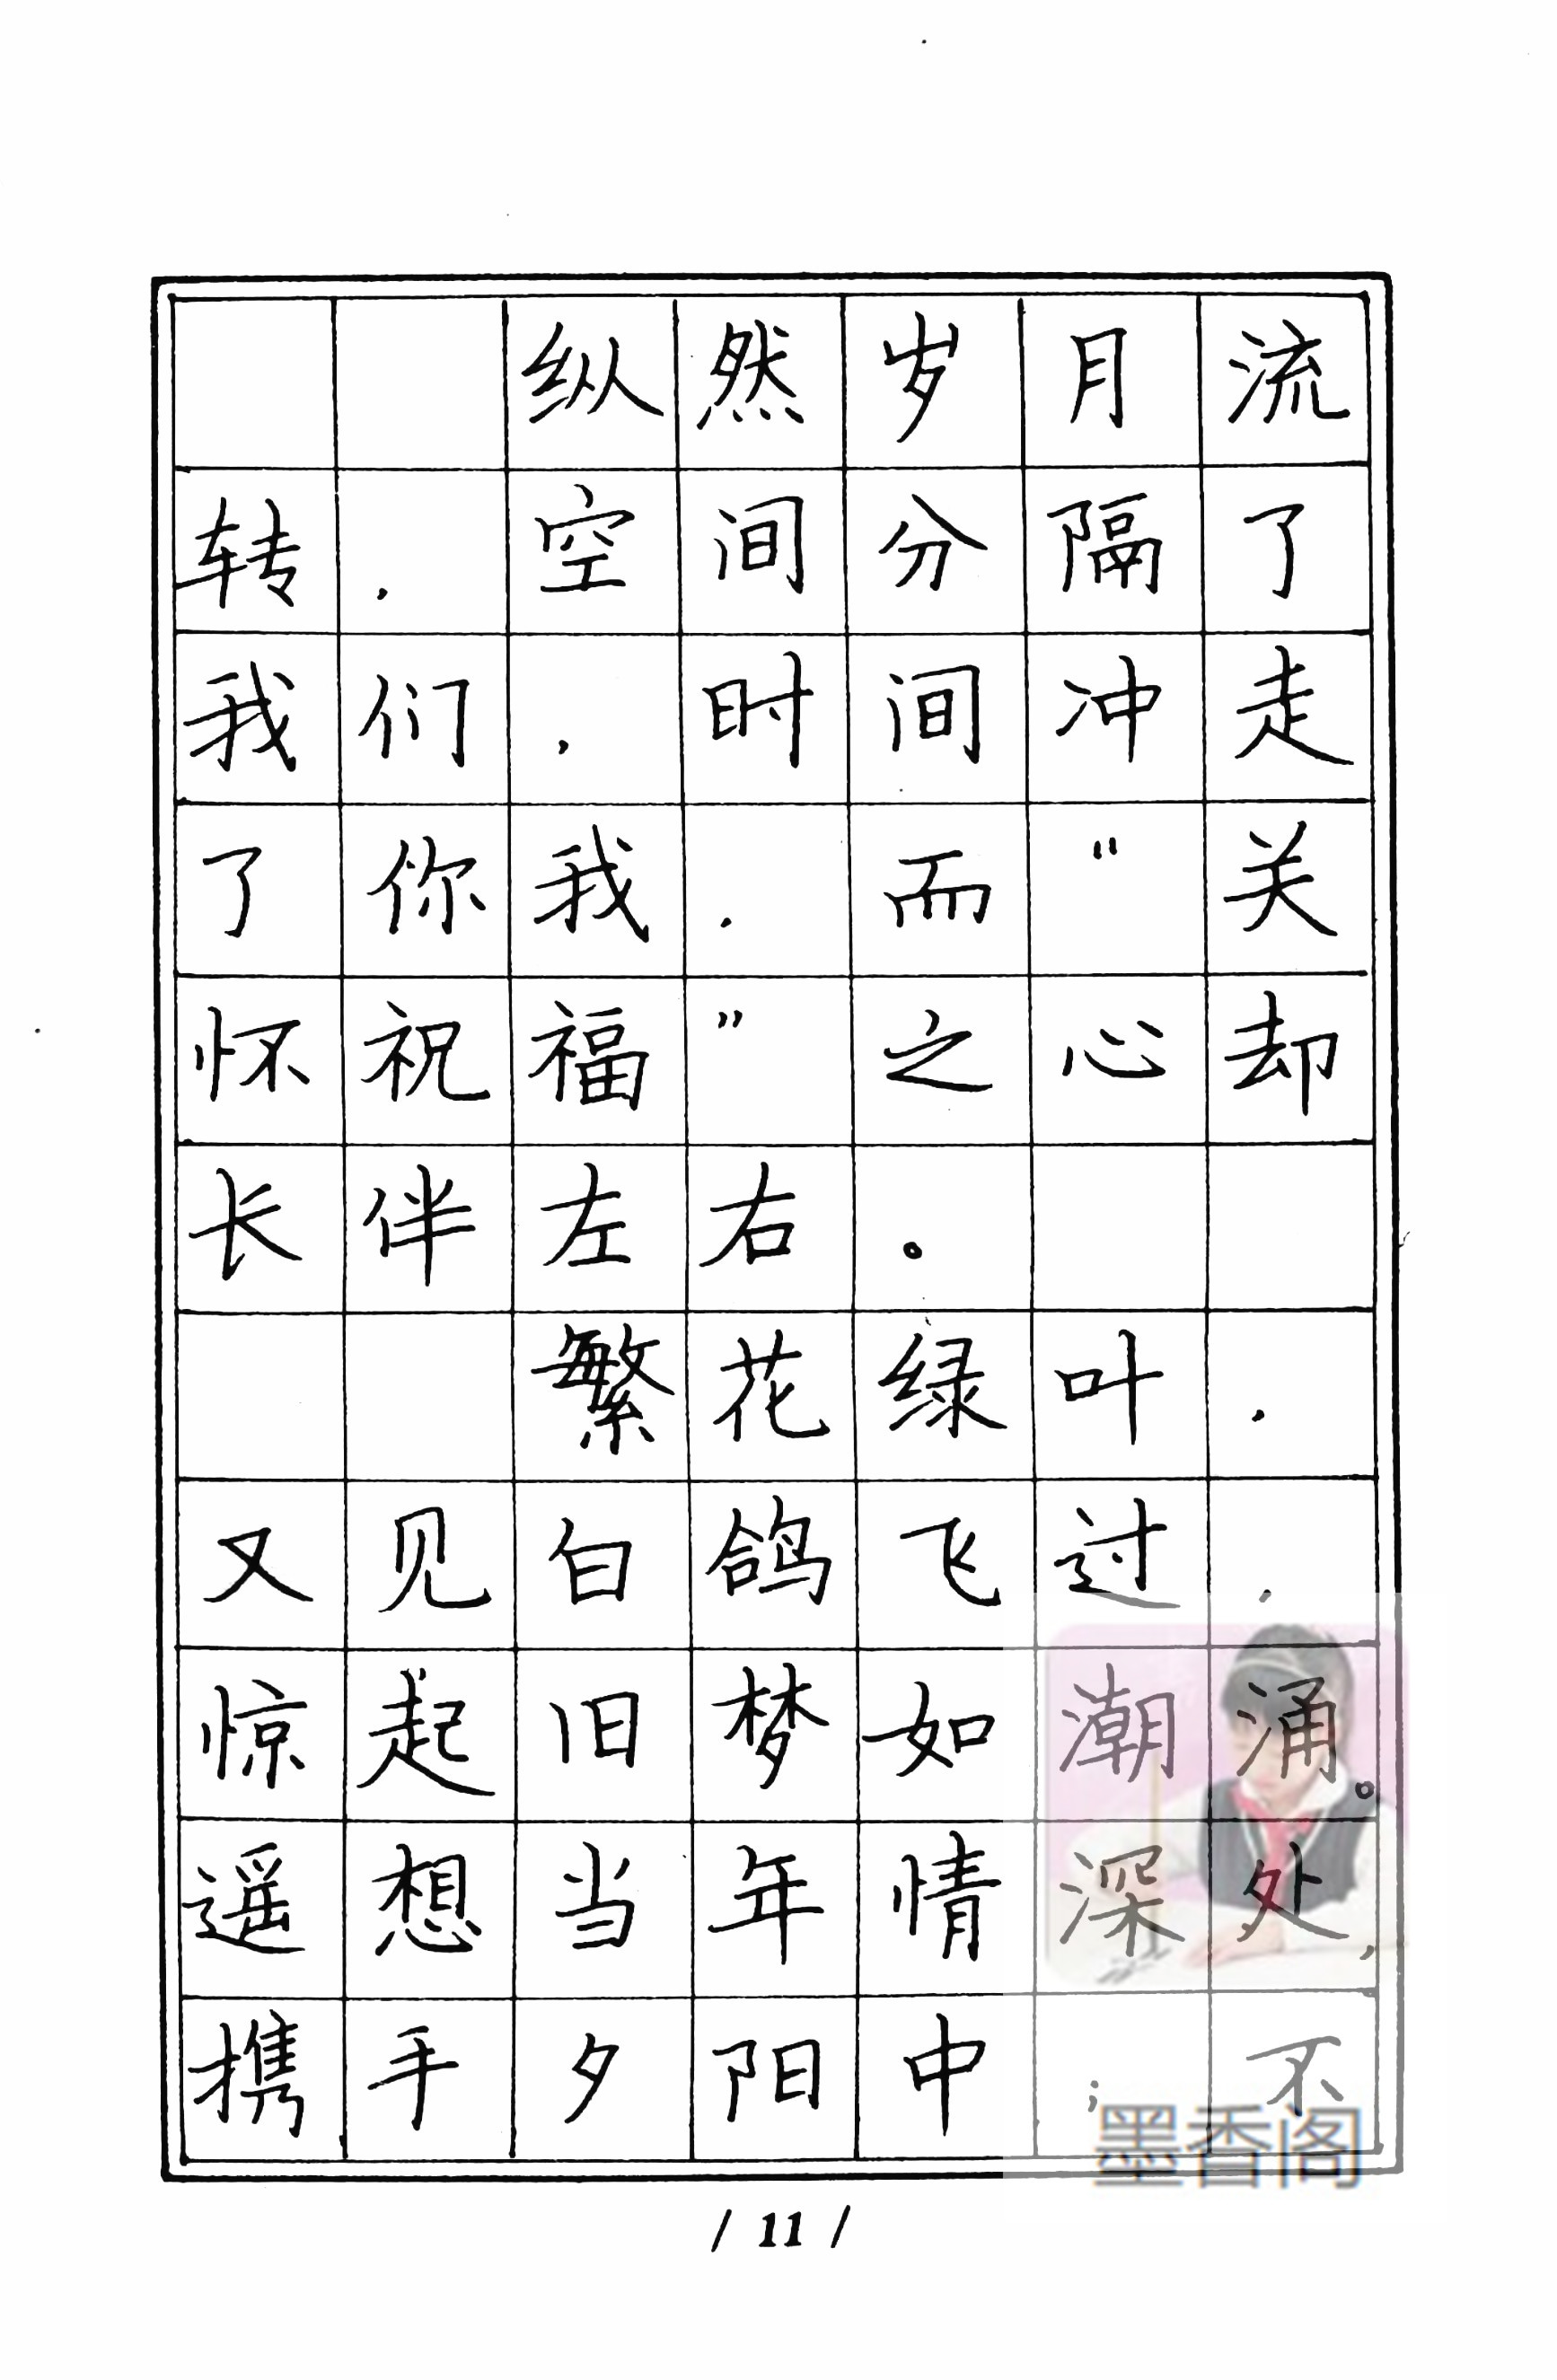 纵然岁月流
转，空间分隔了
我们，时间冲走
了你我，而“关
怀祝福”之心却
长伴左右。
繁花绿叶，
又见白鸽飞过，
惊起旧梦如潮涌。
遥想当年情深处，
携手夕阳中；不
墨香阁
/ 11 /